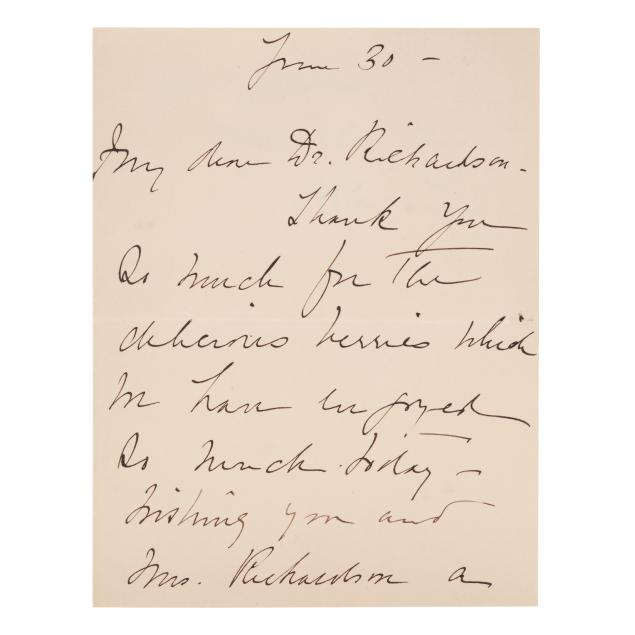 June 30 –
My dear Dr. Richardson.
Thank You
So much for The
delicious berries which
we have enjoyed
So much today –
Wishing you and
Mrs. Richardson a